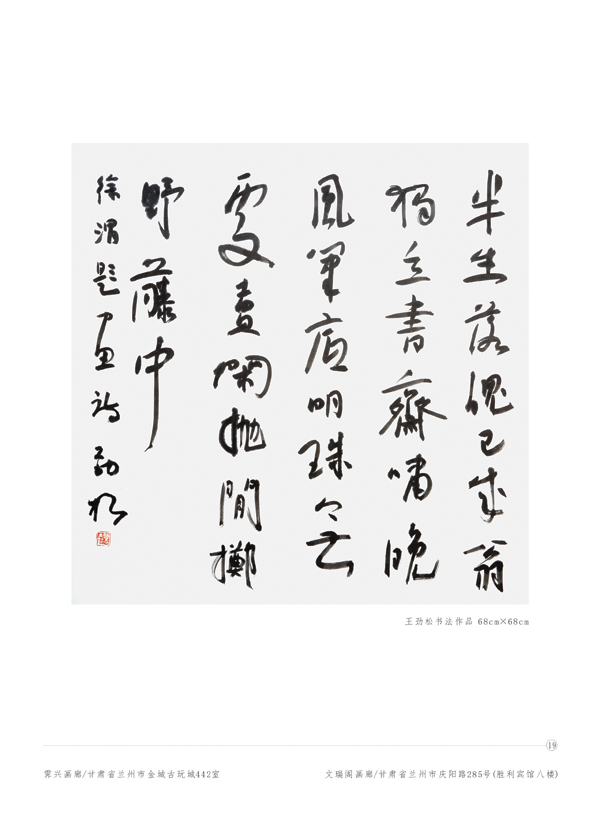 半生落魄已成翁
獨立書齋嘯晚
風筆底明珠無
處賣閑抛閒擲
野藤中
徐渭題画詩 勁松
王劲松书法作品 68cm×68cm
19
霁兴画廊/甘肃省兰州市金城古玩城442室
文瑞阁画廊/甘肃省兰州市庆阳路285号(胜利宾馆八楼)